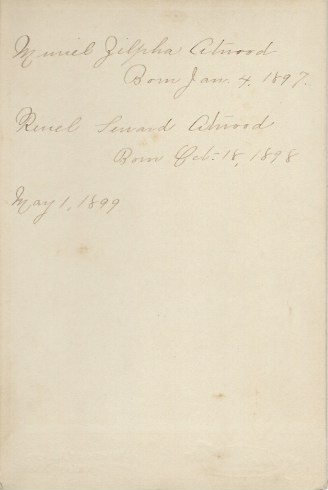 Muriel Zilpha Atwood
Born Jan. 4, 1897.
Reuel Seward Atwood
Born Oct. 18, 1898
May 1, 1899